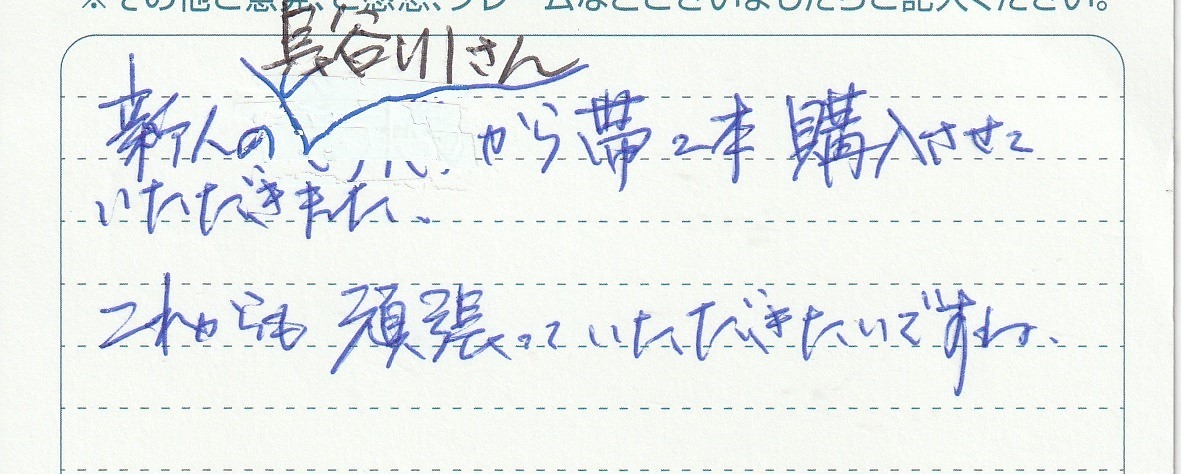 ※その他ご意見、ご感想、クレームなどございましたらご記入ください。
長谷川さん
新人の から帯2本購入させて
いただきました。
これからも頑張っていただきたいですね。